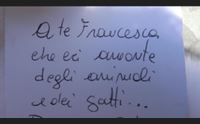 A te Francesca
che eri amante
degli animali
e dei gatti...